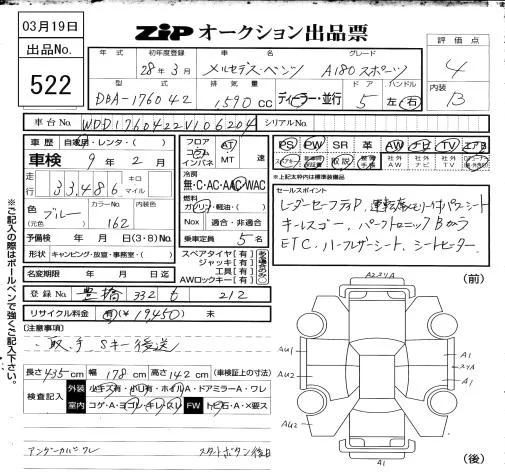 03月19日
ZIP オークション出品票
出品No.
522
年式 初年度登録 車名 グレード
28年3月 メルセデス・ベンツ A180 スポーツ
評価点
4
型式 排気量 ドア ハンドル
DBA-176042 1,590cc ディーラー・並行 5 左・右
内装
B
車台No. WDD1760422V106204 シリアルNo.
車歴 自家用・レンタ・( )
車検 9年2月
走行 33,486 キロ マイル
色 (元色) ブルー カラーNo. 162 内装色
予備検 年 月 日(3・8)No.
形状 キャンピング・放置・事務室・( )
名変期限 年 月 日迄
フロア コラム インパネ AT MT 速
冷房 無・C・AC・AAC・WAC
燃料 ガソリン・軽油・( )
Nox 適合・非適合
乗車定員 5名
スペアタイヤ【有】
ジャッキ【有】
工具【有】
AWロックキー【有】
PS PW SR 革 AW ナビ TV エアB
スマートキー 取説 社外AW 社外ナビ 社外TV
★上記太枠内は標準装備品
セールスポイント
レーダーセーフティP、運転席メモリー付パワーシート
キーレスゴー、パークトロニック Bカメラ
ETC、ハーフレザーシート、シートヒーター
登録No. 豊橋 332 212
リサイクル料金 有(¥19,450) 未
【注意事項】
取、手、Sキー後送
長さ435cm 幅178cm 高さ142cm (車検証上の寸法)
検査記入
外装 小キズ有・小U有・ホイルA・ドアミラーA・ワレ
室内 コゲ・A・ヨゴレ・キレ・スレ FW トビ石・A・X要ス
アンダーカバーワレ
スタートボタン後日
※ご記入の際はボールペンで強くご記入下さい。
(前)
AU1
AU2
AU2
A1
A1
A1
(後)